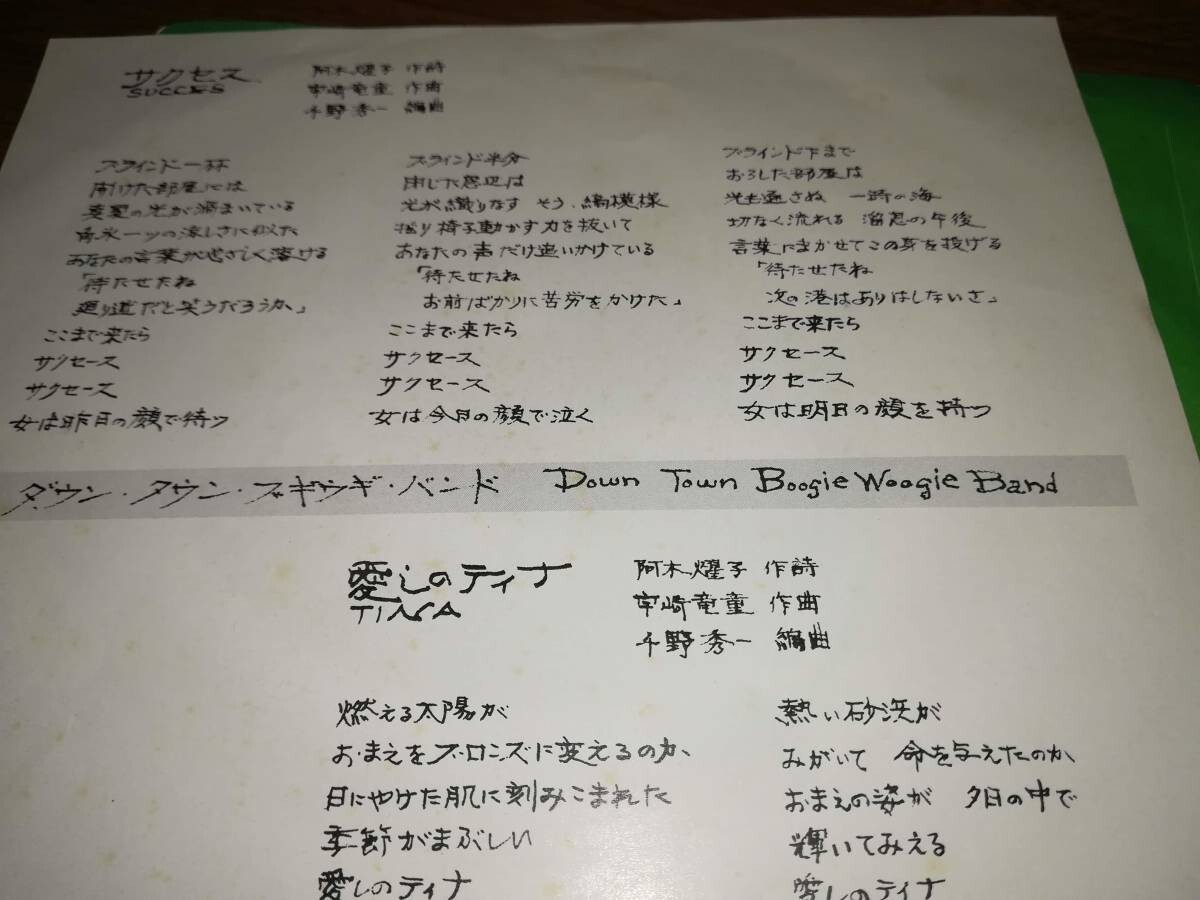 サクセス
SUCCES
阿木燿子 作詩
宇崎竜童 作曲
千野秀一 編曲
ブラインド一杯
開けた部屋には
真夏の光が溜まいている
角氷一ツの涼しさに似た
あなたの言葉がやさしく溶ける
「待たせたね
廻り道だと笑うだろうか」
ここまで来たら
サクセース
サクセース
女は昨日の顔で待つ
ブラインド半分
閉じた窓辺は
光が織りなす そう 縞模様
揺り椅子動かす力を抜いて
あなたの声だけ追いかけている
「待たせたね
お前ばかりに苦労をかけた」
ここまで来たら
サクセース
サクセース
女は今日の顔で泣く
ブラインド下まで
おろした部屋は
光も通さぬ 一時の海
切なく流れる 溜息の午後
言葉にまかせてこの身を投げる
「待たせたね
次の港はありはしないさ」
ここまで来たら
サクセース
サクセース
女は明日の顔を持つ
ダウン・タウン・ブギウギ・バンド Down Town Boogie Woogie Band
愛しのティナ
TINA
阿木燿子 作詩
宇崎竜童 作曲
千野秀一 編曲
燃える太陽が
おまえをブロンズに変えるのか
日にやけた肌に刻みこまれた
季節がまぶしい
愛しのティナ
熱い砂浜が
みがいて 命を与えたのか
おまえの姿が 夕日の中で
輝いてみえる
愛しのティナ